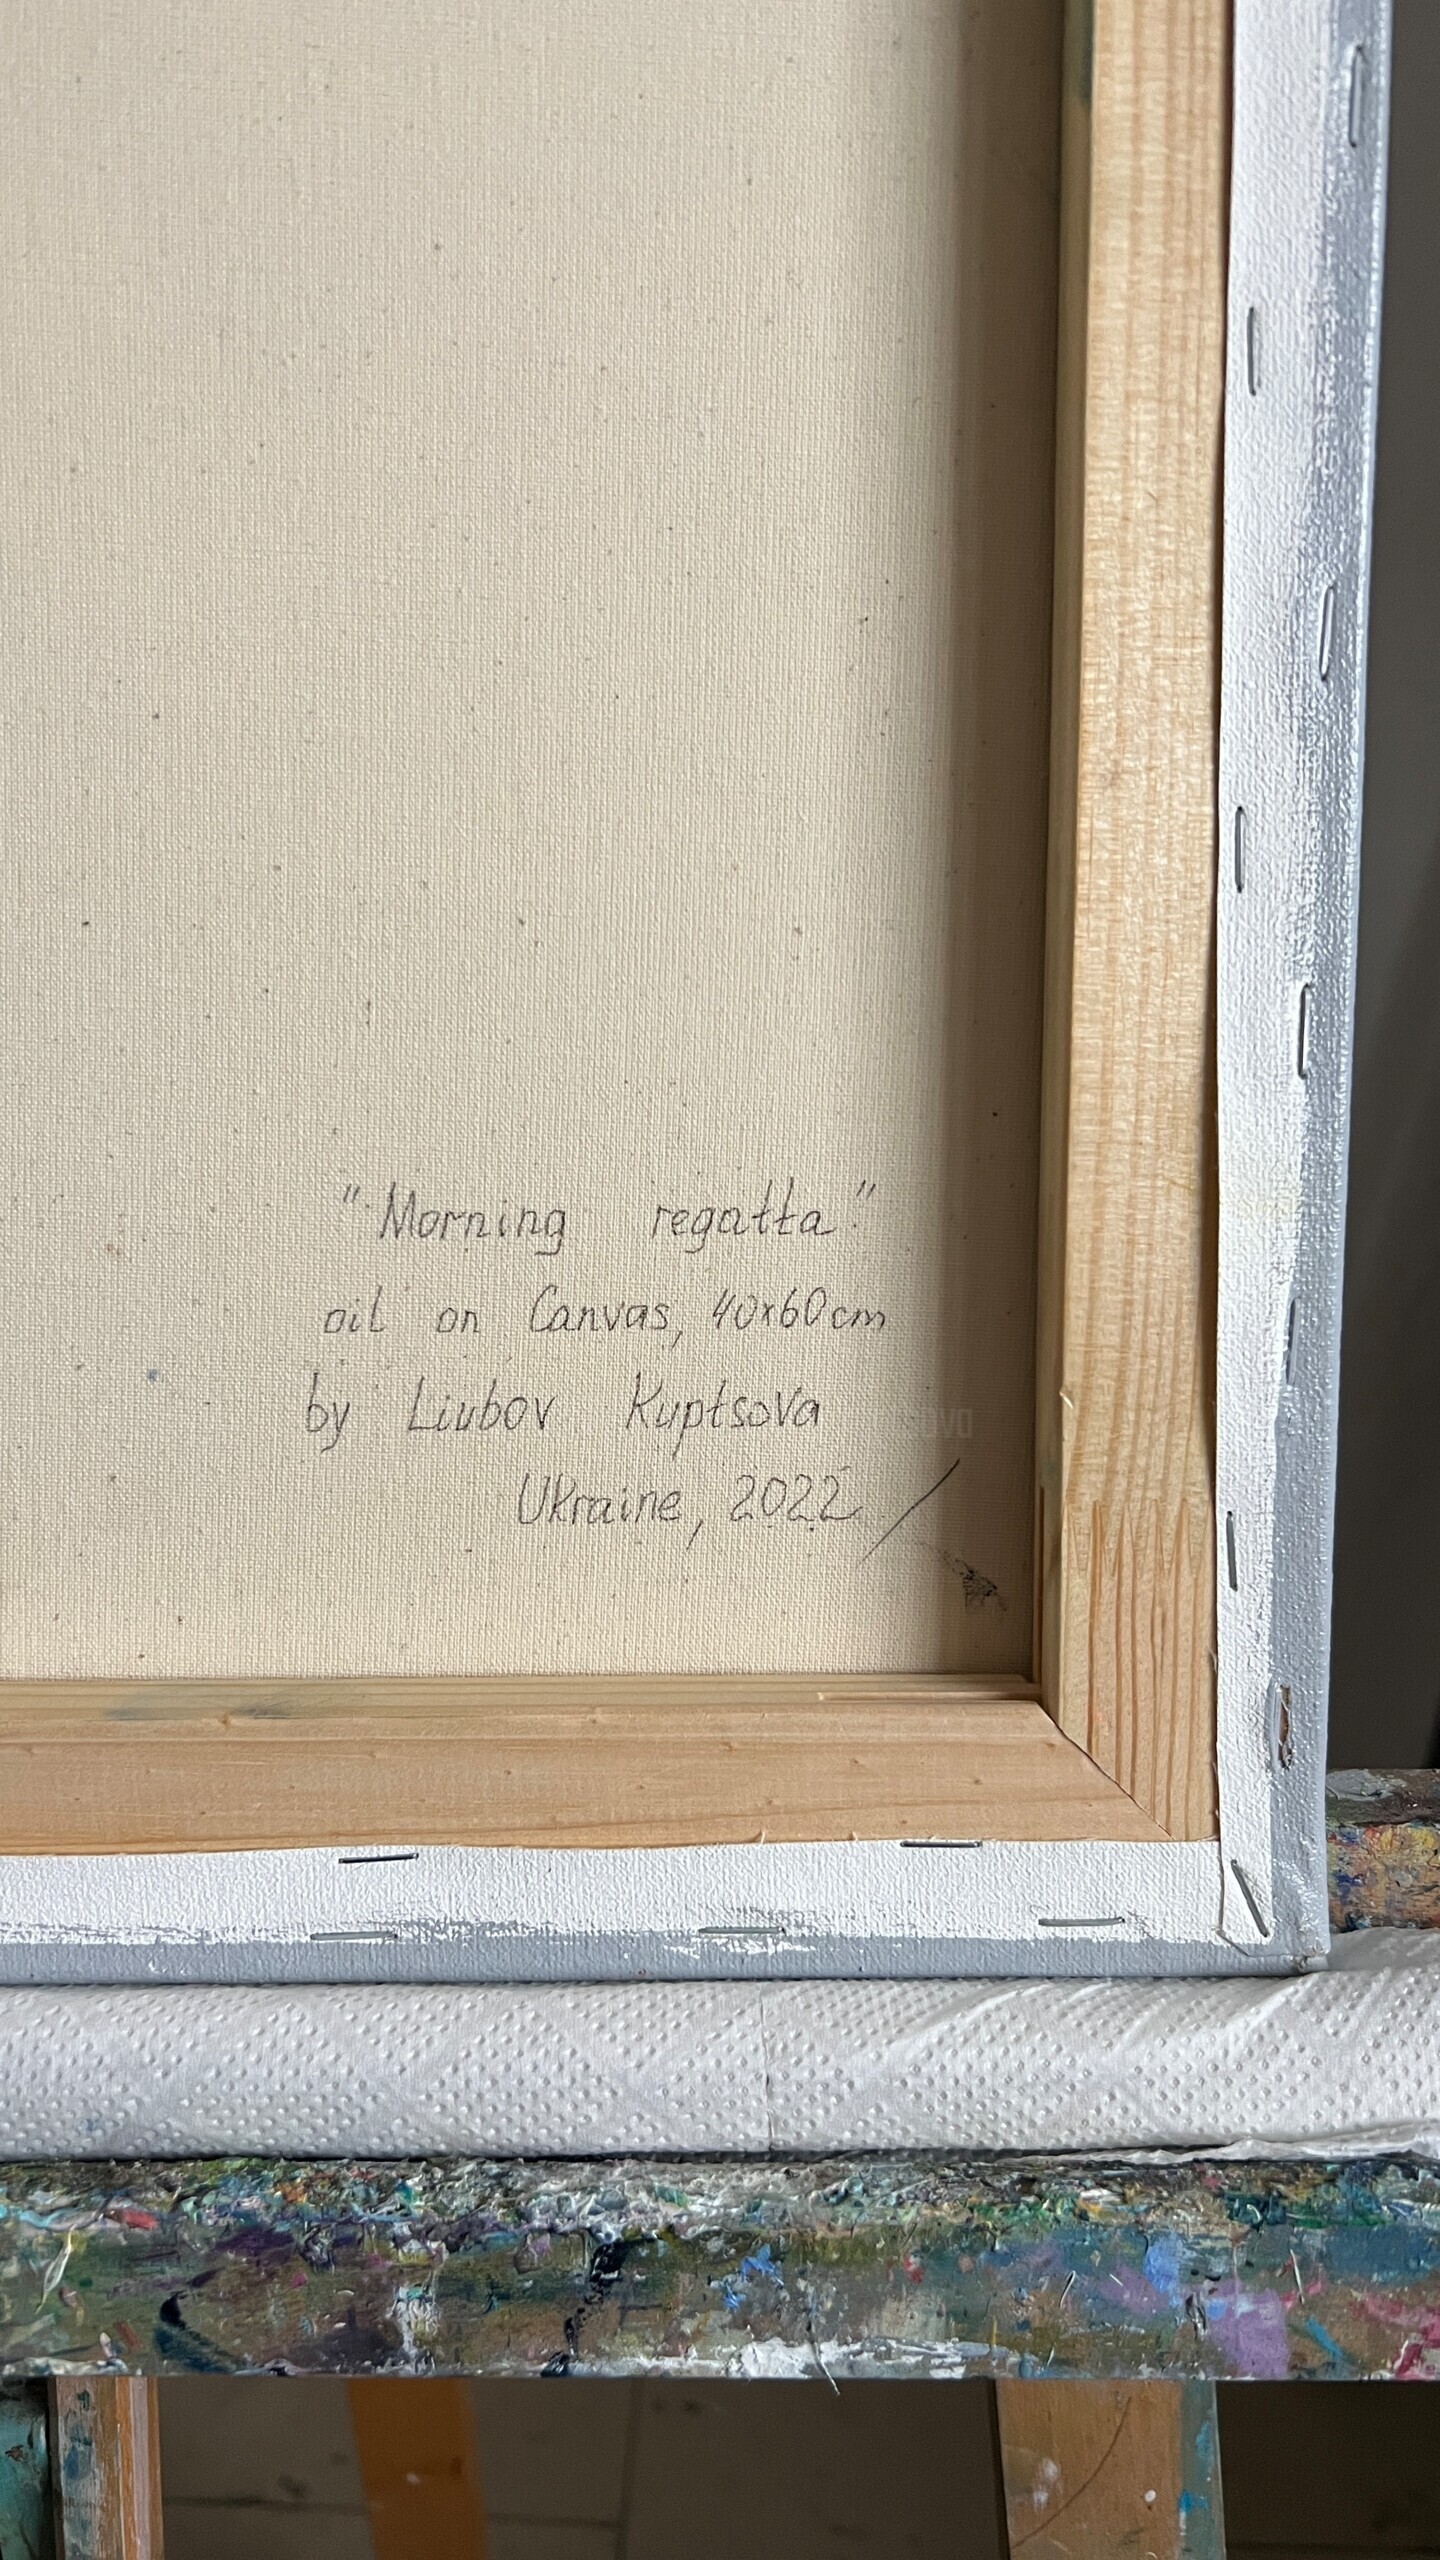 "Morning regatta"
oil on Canvas, 40x60cm
by Liubov Kuptsova
Ukraine, 2022